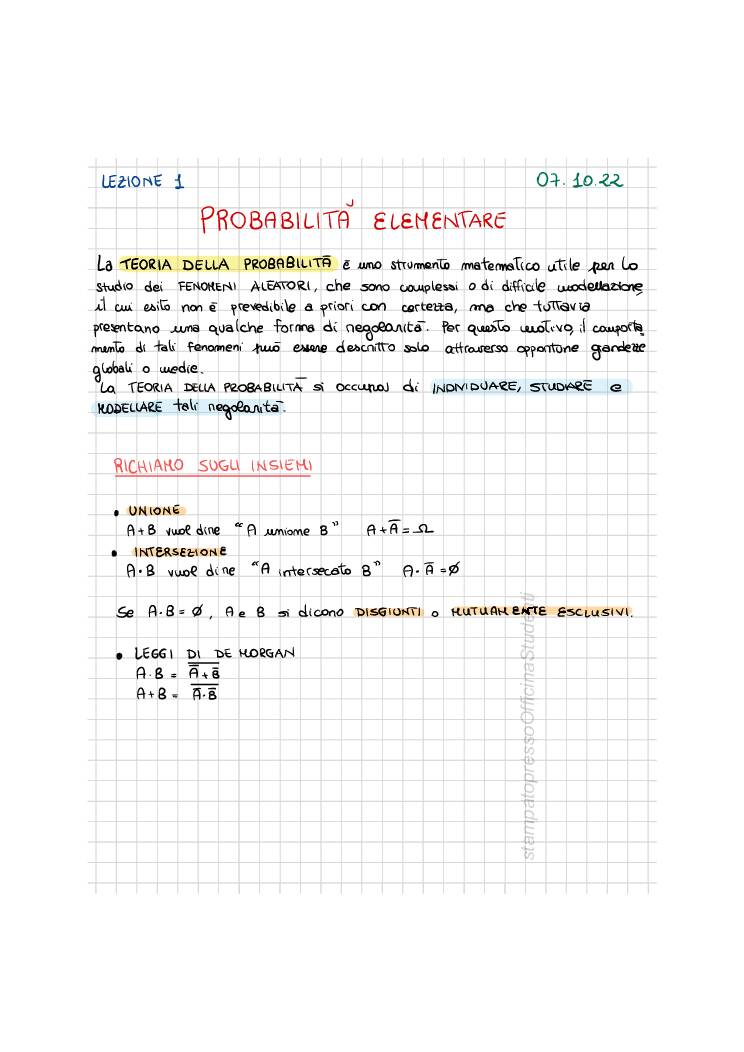 LEZIONE 1 07.10.22
PROBABILITÀ ELEMENTARE
La TEORIA DELLA PROBABILITÀ è uno strumento matematico utile per lo
studio dei FENOMENI ALEATORI, che sono complessi o di difficile modellazione,
il cui esito non è prevedibile a priori con certezza, ma che tuttavia
presentano una qualche forma di regolarità. Per questo motivo, il comporta
mento di tali fenomeni può essere descritto solo attraverso opportune grandezze
globali o medie.
La TEORIA DELLA PROBABILITÀ si occupa di INDIVIDUARE, STUDIARE e
MODELLARE tali regolarità.
RICHIAMO SUGLI INSIEMI
• UNIONE
A+B vuol dire "A unione B" A+A̅=Ω
• INTERSEZIONE
A·B vuol dire "A intersecato B" A·A̅=∅
Se A·B=∅, A e B si dicono DISGIUNTI o MUTUAMENTE ESCLUSIVI.
• LEGGI DI DE MORGAN
A·B = \overline{A̅+B̅}
A+B = \overline{A̅·B̅}
stampatopressoOfficinaStudenti